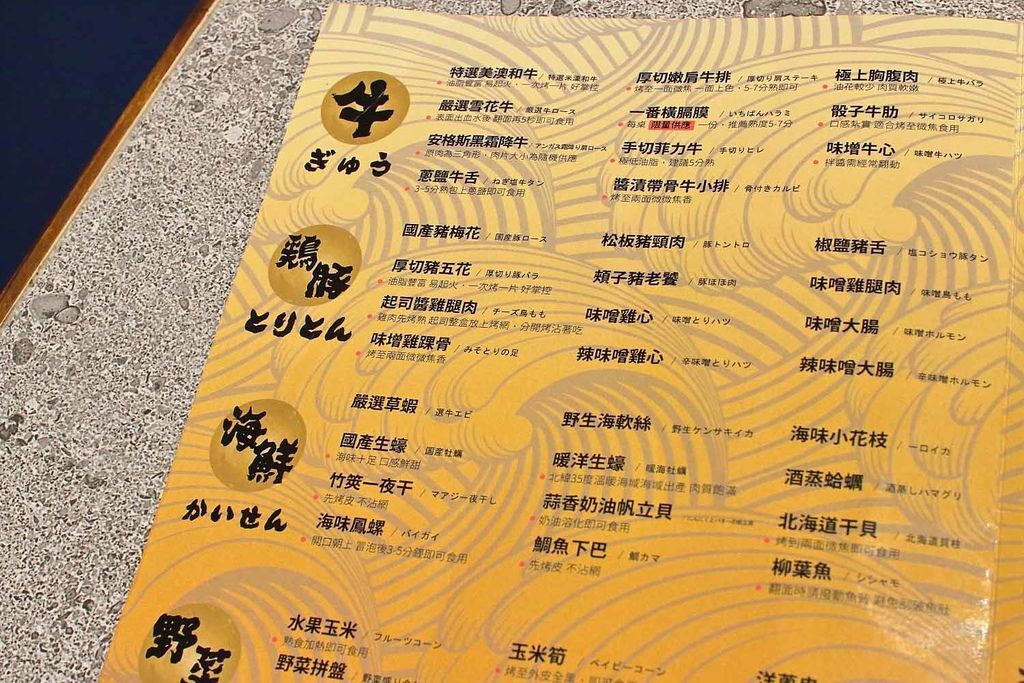 牛
ぎゅう
特選美澳和牛 / 特選米濠和牛
油脂豐富 易起火,一次烤一片 好掌控
嚴選雪花牛 / 厳選牛ロース
表面出血水後 翻面再5秒即可食用
安格斯黑霜降牛 / アンガス霜降り肩ロース
原肉為三角形,肉片大小為隨機供應
蔥鹽牛舌 / ねぎ塩牛タン
3~5分熟包上蔥鹽即可食用
厚切嫩肩牛排 / 厚切り肩ステーキ
烤至一面微焦 一面上色,5-7分熟即可
一番橫膈膜 / いちばんハラミ
每桌 限量供應 一份,推薦熟度5-7分
手切菲力牛 / 手切りヒレ
極低油脂,建議5分熟
醬漬帶骨牛小排 / 骨付きカルビ
烤至兩面微微焦香
極上胸腹肉 / 極上牛バラ
油花較少 肉質軟嫩
骰子牛肋 / サイコロサガリ
口感紮實 適合烤至微焦食用
味增牛心 / 味噌牛ハツ
拌醬需經常翻動
鶏豚
とりとん
國產豬梅花 / 国産豚ロース
厚切豬五花 / 厚切り豚バラ
油脂豐富 易起火,一次烤一片 好掌控
起司醬雞腿肉 / チーズ鳥もも
雞肉先烤熟 起司整盒放上烤網,分開烤沾著吃
味增雞踝骨 / みそとりの足
烤至兩面微微焦香
松板豬頸肉 / 豚トントロ
頰子豬老饕 / 豚ほほ肉
味噌雞心 / 味噌とりハツ
辣味噌雞心 / 辛味噌とりハツ
椒鹽豬舌 / 塩コショウ豚タン
味噌雞腿肉 / 味噌鳥もも
味噌大腸 / 味噌ホルモン
辣味噌大腸 / 辛味噌ホルモン
海鮮
かいせん
嚴選草蝦 / 選牛エビ
國產生蠔 / 国産牡蠣
海味十足 口感鮮甜
竹筴一夜干 / マアジ一夜干し
先烤皮 不沾網
海味鳳螺 / バイガイ
開口朝上 冒泡後3-5分鐘即可食用
野生海軟絲 / 野生ケンサキイカ
暖洋生蠔 / 暖海牡蠣
北緯35度溫暖海域海域出產 肉質飽滿
蒜香奶油帆立貝
奶油溶化即可食用
鯛魚下巴 / 鯛カマ
先烤皮 不沾網
海味小花枝 / 一口イカ
酒蒸蛤蠣 / 酒蒸しハマグリ
北海道干貝 / 北海道貝柱
烤到兩面微焦即可食用
柳葉魚 / シシャモ
翻面時請撥動魚背 避免刮破魚肚
野菜
水果玉米 / フルーツコーン
熟食加熱即可食用
野菜拼盤
玉米筍 / ベイビーコーン